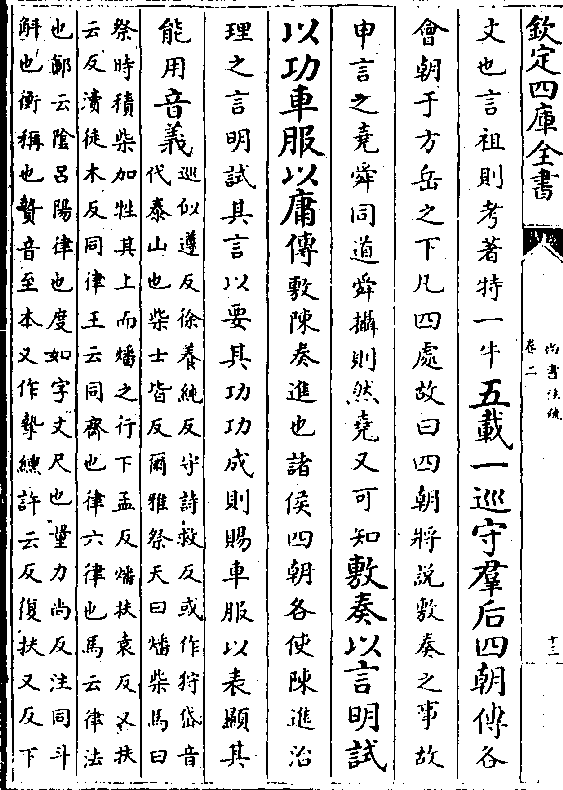 欽定四庫全書
尚書注疏
卷二
十三
文也言祖則考著特一牛五載一巡守羣后四朝傳各
會朝于方岳之下凡四處故曰四朝將說敷奏之事故
申言之堯舜同道舜攝則然堯又可知敷奏以言明試
以功車服以庸傳敷陳奏進也諸侯四朝各使陳進治
理之言明試其言以要其功功成則賜車服以表顯其
能用音義巡似遵反徐養純反守詩救反或作狩岱音
代泰山也柴士皆反爾雅祭天曰燔柴馬曰
祭時積柴加牲其上而燔之行下孟反燔扶袁反又扶
云反瀆徒木反同律王云同齊也律六律也馬云律法
也鄭云陰呂陽律也度如字丈尺也量力尚反注同斗
斛也衡稱也贄音至本又作摯纁許云反復扶又反下